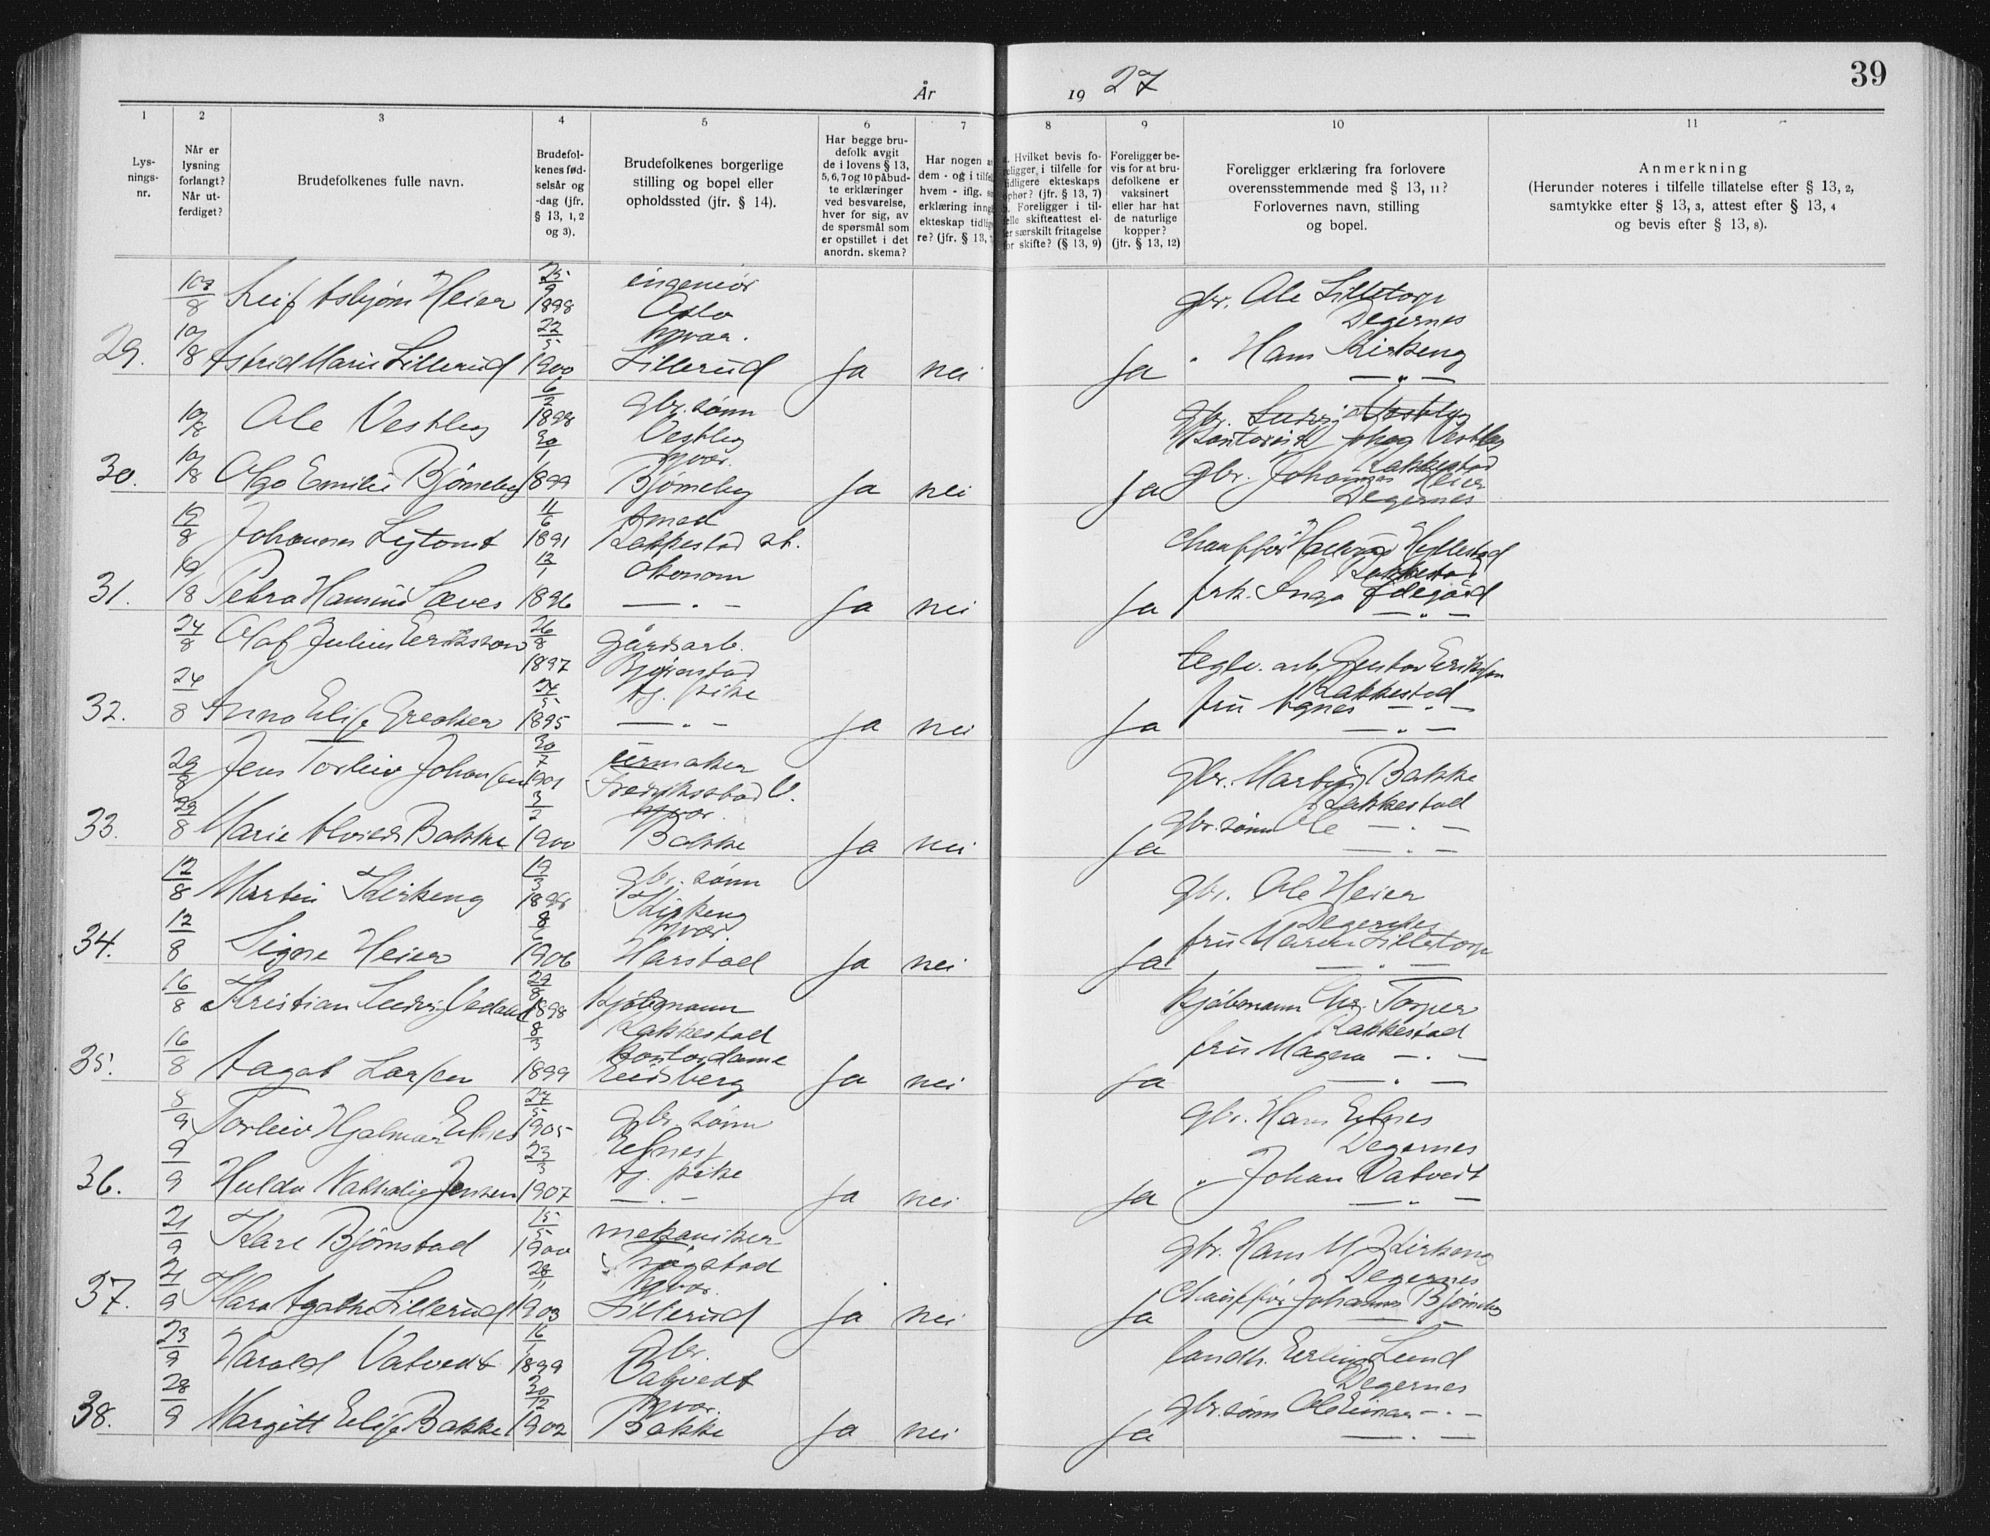 År 19 27
39
1 2 3 4 5 6 7 8 9 10 11
Lys-
nings-
nr.
Når er
lysning
forlangt?
Når ut-
ferdiget?
Brudefolkenes fulle navn.
Brudefol-
kenes fød-
selsår og
-dag (jfr.
§ 13, 1, 2
og 3).
Brudefolkenes borgerlige
stilling og bopel eller
opholdssted (jfr. § 14).
Har begge bru-
defolk avgit
de i lovens § 13,
5, 6, 7 og 10 påbud-
te erklæringer
ved besvarelse,
hver for sig, av
de spørsmål som
er opstillet i det
anordn. skema?
Har nogen a
dem - og i tilfel
hvem - iflg. s
erklæring inng
ekteskap tidlig
re? (jfr. § 13,
. Hvilket bevis fo-
religger, i tilfelle for
idligere ekteskaps
ophør? (jfr. § 13, 7)
. Foreligger i til-
elle skifteattest el-
er særskilt fritagelse
or skifte? (§ 13, 9)
Foreligger be-
vis for at bru-
defolkene er
vaksinert
eller har hat
de naturlige
kopper?
(jfr. § 13, 12)
Foreligger erklæring fra forlovere
overensstemmende med § 13, 11?
Forlovernes navn, stilling
og bopel.
Anmerkning
(Herunder noteres i tilfelle tillatelse efter § 13, 2,
samtykke efter § 13, 3, attest efter § 13, 4
og bevis efter § 13, 8).
10/8 Leif Asbjørn Heier 25/9 1898 ingeniør Oslo gbr. Ole Lilletorp Degernes
29. 10/8 Astrid Marie Lillerud 22/5 1900 hjvær. Lillerud Ja nei Ja " Hans Kirkeng — " —
10/8 Ole Vestby 6/2 1898 gbr. sønn Vestby gbr. Ludvig Vestby
Vestby Rakkestad
30. 10/8 Olga Emilie Bjørneby 30/1 1899 hjvær. Bjørneby Ja nei Ja gbr. Johannes Heier Degernes
19/8 Johannes 11/6 1891 smed Rakkestad st. chauffør Hellestad Rakkestad
31. 19/8 Petra Hansine Sæves 12/1 1896 økonom — " — Ja nei Ja frk. Inga Ødegård — " —
24/8 Olaf Julius Eriksson 26/8 1897 gårdsarb. Bjørnstad teglv. arb. Gustav Eriksson Rakkestad
32. 24/8 Anna Elise Greaker 24/5 1895 tj. pike — " — Ja nei Ja fru Agnes — " — — " —
29/8 Jens Torleiv Johansen 30/7 1901 urmaker Fredrikstad V. gbr. Martin Bakke Rakkestad
33. 29/8 Marie Alvida Bakke 3/2 1900 hjvær. Bakke Ja nei Ja gbr. sønn Ole — " — — " —
12/8 Martin Kirkeng 19/3 1898 gbr. sønn Kirkeng gbr. Ole Heier Degernes
34. 12/8 Signe Heier 8/6 1906 hjvær. Harstad Ja nei Ja fru Maren Lilletorp — " —
16/8 Kristian Ludvig 1898 kjøbmann Rakkestad kjøbmann Chr. Torper Rakkestad
35. 16/8 Aagot Larsen 8/3 1899 kontordame Eidsberg Ja nei Ja fru Magna — " — — " —
8/9 Torleiv Hjalmar Elnes 27/5 1905 gbr. sønn Elnes gbr. Hans Elnes Degernes
36. 9/9 Hulda Nathalie Jensen 23/3 1907 tj. pike — " — Ja nei Ja " Johan Vatvedt — " —
21/9 Kåre Bjørnstad 15/5 1900 mekaniker Trøgstad gbr. Hans M Kirkeng Degernes
37. 21/9 Klara Agathe Lillerud 28/11 1903 hjvær. Lillerud Ja nei Ja chauffør Johannes Bjørneby — " —
23/9 Harald Vatvedt 16/1 1899 gbr. Vatvedt landh. Erling Lund Degernes
38. 28/9 Margitt Elise Bakke 30/12 1902 hjvær. Bakke Ja nei Ja gbr. sønn Ole Einar — " — — " —